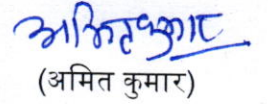 अमित कुमार
(अमित कुमार)